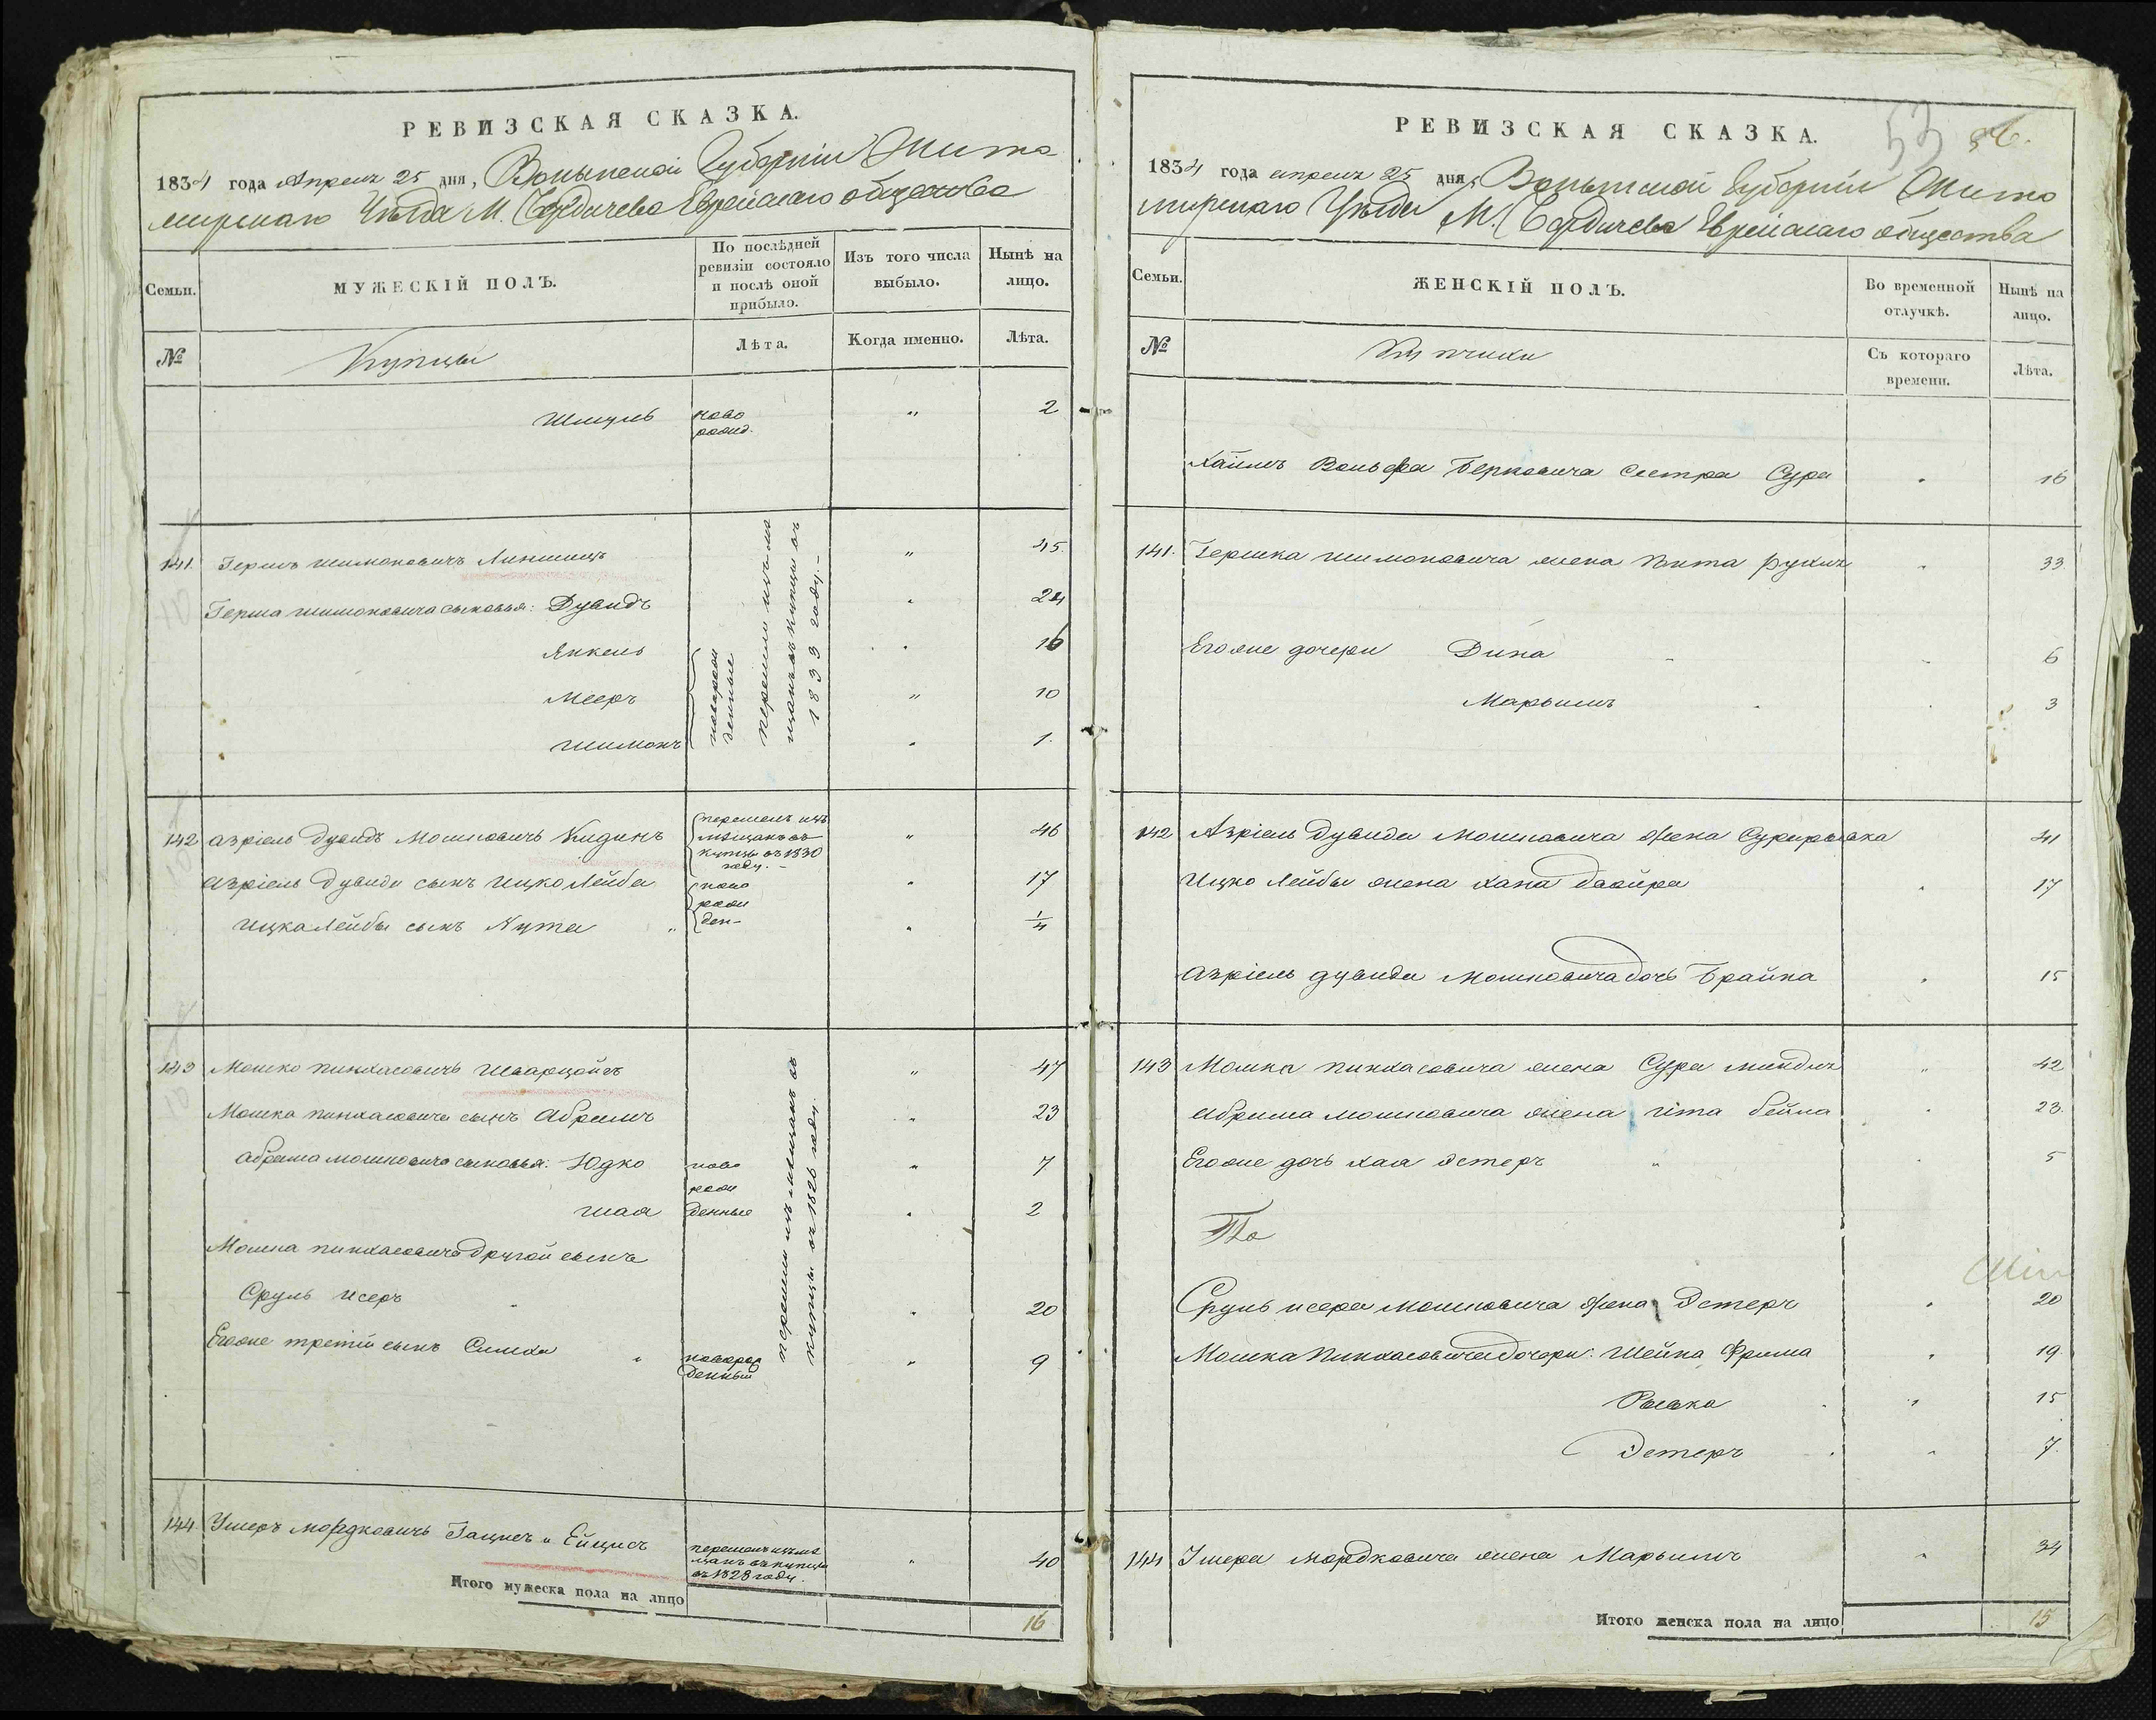 РЕВИЗСКАЯ СКАЗКА.
1834 года Апреля 25 дня, Волынской Губернии Жито
мирскаго Уезда М. Бердичева Еврейскаго общества
Семьи.
МУЖЕСКІЙ ПОЛЪ.
По послѣдней ревизіи состояло и послѣ оной прибыло.
Изъ того числа выбыло.
Нынѣ на лицо.
№
Купцы
Лѣта.
Когда именно.
Лѣта.
Шмуль ново рожд. " 2
перешли изъ ме
щанъ въ купцы въ
1833 году. -
141. Гершъ Шимоновичъ " 45.
Герша Шимоновича сыновья: Дувидъ " 24
Янкель " 16
новорож
денные
Мееръ " 10
Шимонъ " 1.
142 Азріель Дувидъ Мошковичъ
перешелъ изъ
мещанъ въ
купцы въ 1830
году. -
" 46
Азріель Дувида сынъ Ицко Лейба " 17
ново
рож
ден-
Ицка Лейбы сынъ Нута " " 1/4
перешли изъ мещанъ въ
купцы въ 1828 году.
143 Мошко Пинхасовичъ " 47
Мошка Пинхасовича сынъ Абрамъ " 23
Абрама Мошковича сыновья: Юдко ново " 7
рож
Шая денные " 2
Мошка Пинхасовича другой сынъ
Сруль Исеръ " 20
Егоже третій сынъ Симха " новорож
денный " 9
144. Ушеръ Мордковичъ
перешелъ изъ ме
щанъ въ купцы
въ 1828 году.
" 40
Итого мужеска пола на лицо
16
РЕВИЗСКАЯ СКАЗКА.
53
1834 года апреля 25 дня, Волынской Губернии Жито
мирскаго Уезда М. Бердичева Еврейскаго общества
Семьи.
ЖЕНСКІЙ ПОЛЪ.
Во временной отлучкѣ.
Нынѣ на лицо.
№
Купчихи
Съ котораго времени.
Лѣта.
Хаимъ Вольфа Берковича сестра Сура " 16
141. Гершка Шимоновича жена Рухля " 33
Егоже дочери Дина " 6
Марьямъ " 3
142 Азріель Дувида Мошковича жена Сура Рывка 41
Ицко Лейбы жена Хана Двойра " 17
Азріель Дувида Мошковича дочь Брайна " 15
143 Мошка Пинхасовича жена Сура Миндля " 42
Абрама Мошковича жена Гита Бейла " 23.
Егоже дочь Хая Эстеръ " " 5
Сруль Исера Мошковича жена Эстеръ " 20
Мошка Пинхасовича дочери: Шейна Фрима " 19
Рывка " 15
Эстеръ " 7.
144 Ушера Мордковича жена Марьямъ " 34
Итого женска пола на лицо
15